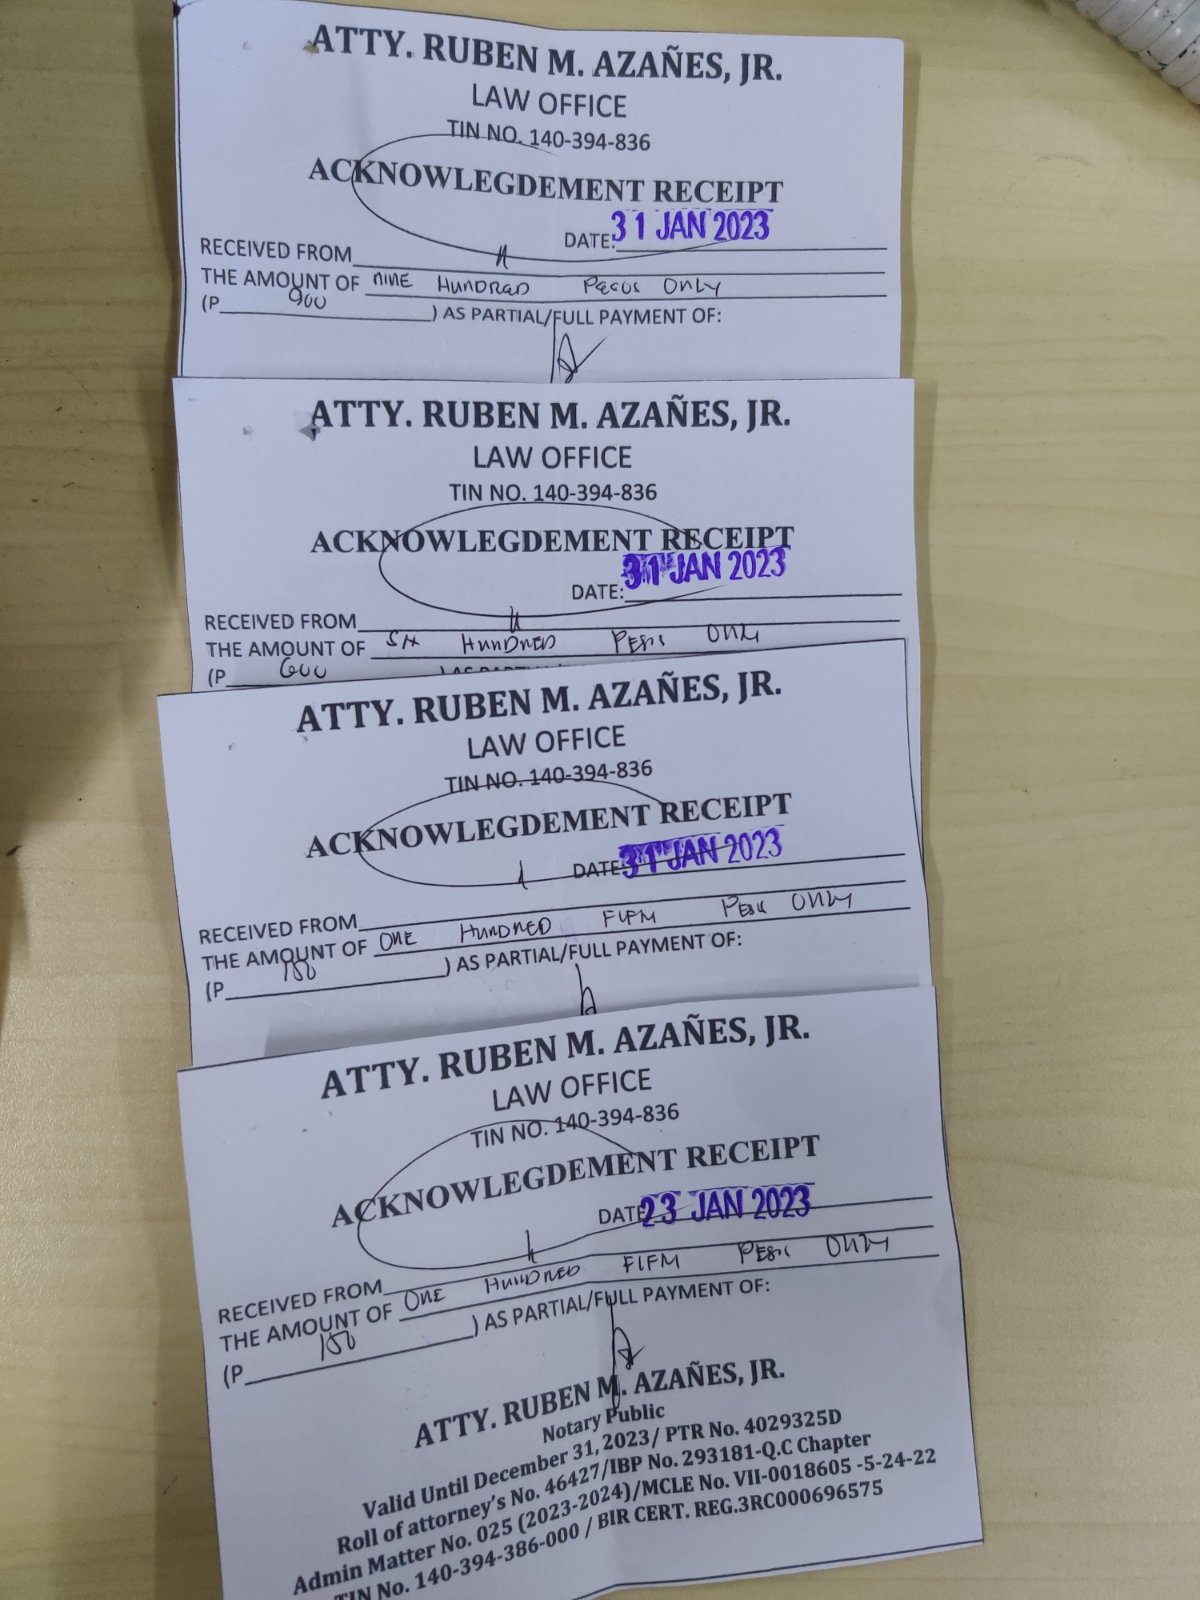 ATTY. RUBEN M. AZAÑES, JR.
LAW OFFICE
TIN NO. 140-394-836
ACKNOWLEGDEMENT RECEIPT
DATE: 31 JAN 2023
RECEIVED FROM
THE AMOUNT OF NINE HUNDRED PESOS ONLY
(P 900 ) AS PARTIAL/FULL PAYMENT OF:
ATTY. RUBEN M. AZAÑES, JR.
LAW OFFICE
TIN NO. 140-394-836
ACKNOWLEGDEMENT RECEIPT
DATE: 31 JAN 2023
RECEIVED FROM
THE AMOUNT OF SIX HUNDRED PESOS ONLY
(P 600 ) AS PARTIAL/
ATTY. RUBEN M. AZAÑES, JR.
LAW OFFICE
TIN NO. 140-394-836
ACKNOWLEGDEMENT RECEIPT
DATE: 31 JAN 2023
RECEIVED FROM
THE AMOUNT OF ONE HUNDRED FIFTY PESOS ONLY
(P 150 ) AS PARTIAL/FULL PAYMENT OF:
ATTY. RUBEN M. AZAÑES, JR.
LAW OFFICE
TIN NO. 140-394-836
ACKNOWLEGDEMENT RECEIPT
DATE 23 JAN 2023
RECEIVED FROM
THE AMOUNT OF ONE HUNDRED FIFTY PESOS ONLY
(P 150 ) AS PARTIAL/FULL PAYMENT OF:
ATTY. RUBEN M. AZAÑES, JR.
Notary Public
Valid Until December 31, 2023/ PTR No. 4029325D
Roll of attorney's No. 46427/IBP No. 293181-Q.C Chapter
Admin Matter No. 025 (2023-2024)/MCLE No. VII-0018605 -5-24-22
TIN No. 140-394-386-000 / BIR CERT. REG.3RC000696575